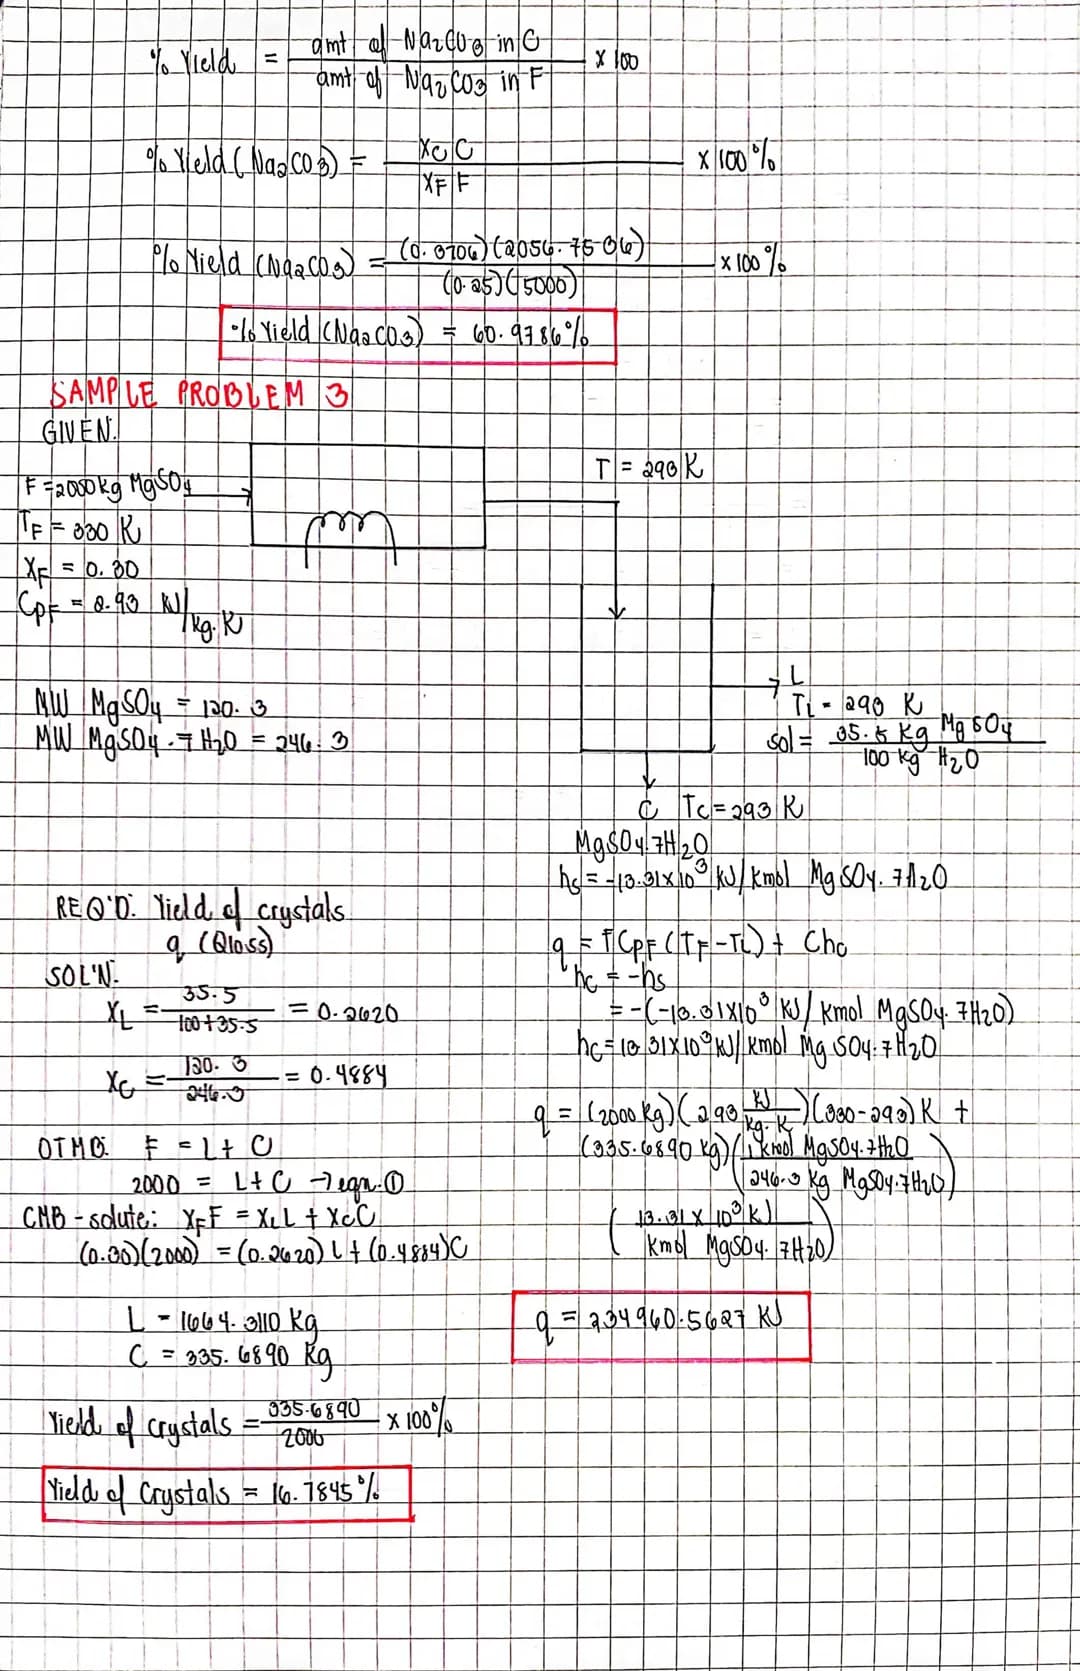 % Yield = amt of Na2CO3 in C / amt of Na2CO3 in F x 100
% Yield (Na2CO3) = XC C / XF F x 100%
% Yield (Na2CO3) = (0.3706)(2056.7506) / (0.25)(5000) x 100%
% Yield (Na2CO3) = 60.9786%
SAMPLE PROBLEM 3
GIVEN:
F = 2000 kg MgSO4
TF = 330 K
XF = 0.30
CPF = 2.93 KJ/kg.K
T = 293 K
MW MgSO4 = 120.3
MW MgSO4.7H2O = 246.3
L
TL = 293 K
sol = 35.5 kg MgSO4 / 100 kg H2O
C TC = 293 K
MgSO4.7H2O
hs = -13.31x10³ KJ/kmol MgSO4.7H2O
REQ'D: Yield of crystals
q (Qloss)
SOL'N:
XL = 35.5 / 100+35.5 = 0.2620
XC = 120.3 / 246.3 = 0.4884
OTMB: F = L + C
2000 = L + C → eqn.①
CMB - solute: XFF = XLL + XCC
(0.30)(2000) = (0.2620)L + (0.4884)C
L = 1664.3110 kg
C = 335.6890 kg
Yield of crystals = 335.6890 / 2000 x 100%
Yield of crystals = 16.7845%
q = FCPF (TF - TL) + Chc
hc = -hs
= -(-13.31x10³ KJ/kmol MgSO4.7H2O)
hc = 13.31x10³ KJ/kmol MgSO4.7H2O
q = (2000 kg)(2.93 KJ / kg.K)(330-293)K +
(335.6890 kg)(1 kmol MgSO4.7H2O / 246.3 kg MgSO4.7H2O)
(13.31 x 10³ KJ / kmol MgSO4.7H2O)
q = 234960.5627 KJ